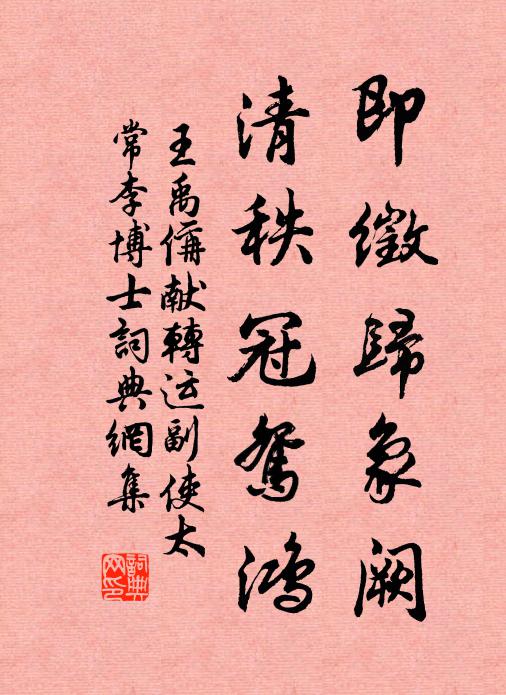 即徵歸象闕
清秩冠鴛鴻
王禹偁献轉运副使太
常李博士詞典網集
詞典
网印